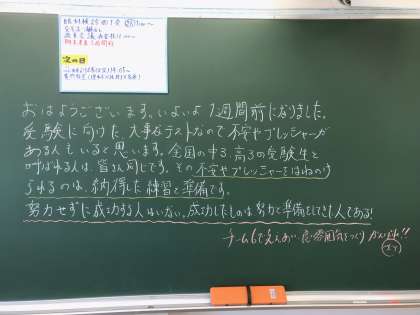 次の日
おはようございます。いよいよ1週間前になりました。
受験に向けた、大事なテストなので不安やプレッシャーが
ある人もいると思います。全国の中3、高3の受験生と
呼ばれる人は、皆さん同じです。その不安やプレッシャーをはねのけ
られるのは、納得した練習と準備です。
努力せずに成功する人はいない。成功したものは、努力と準備をしてきた人である!
チーム6で支えあい、良い雰囲気をつくり がんばれ!!